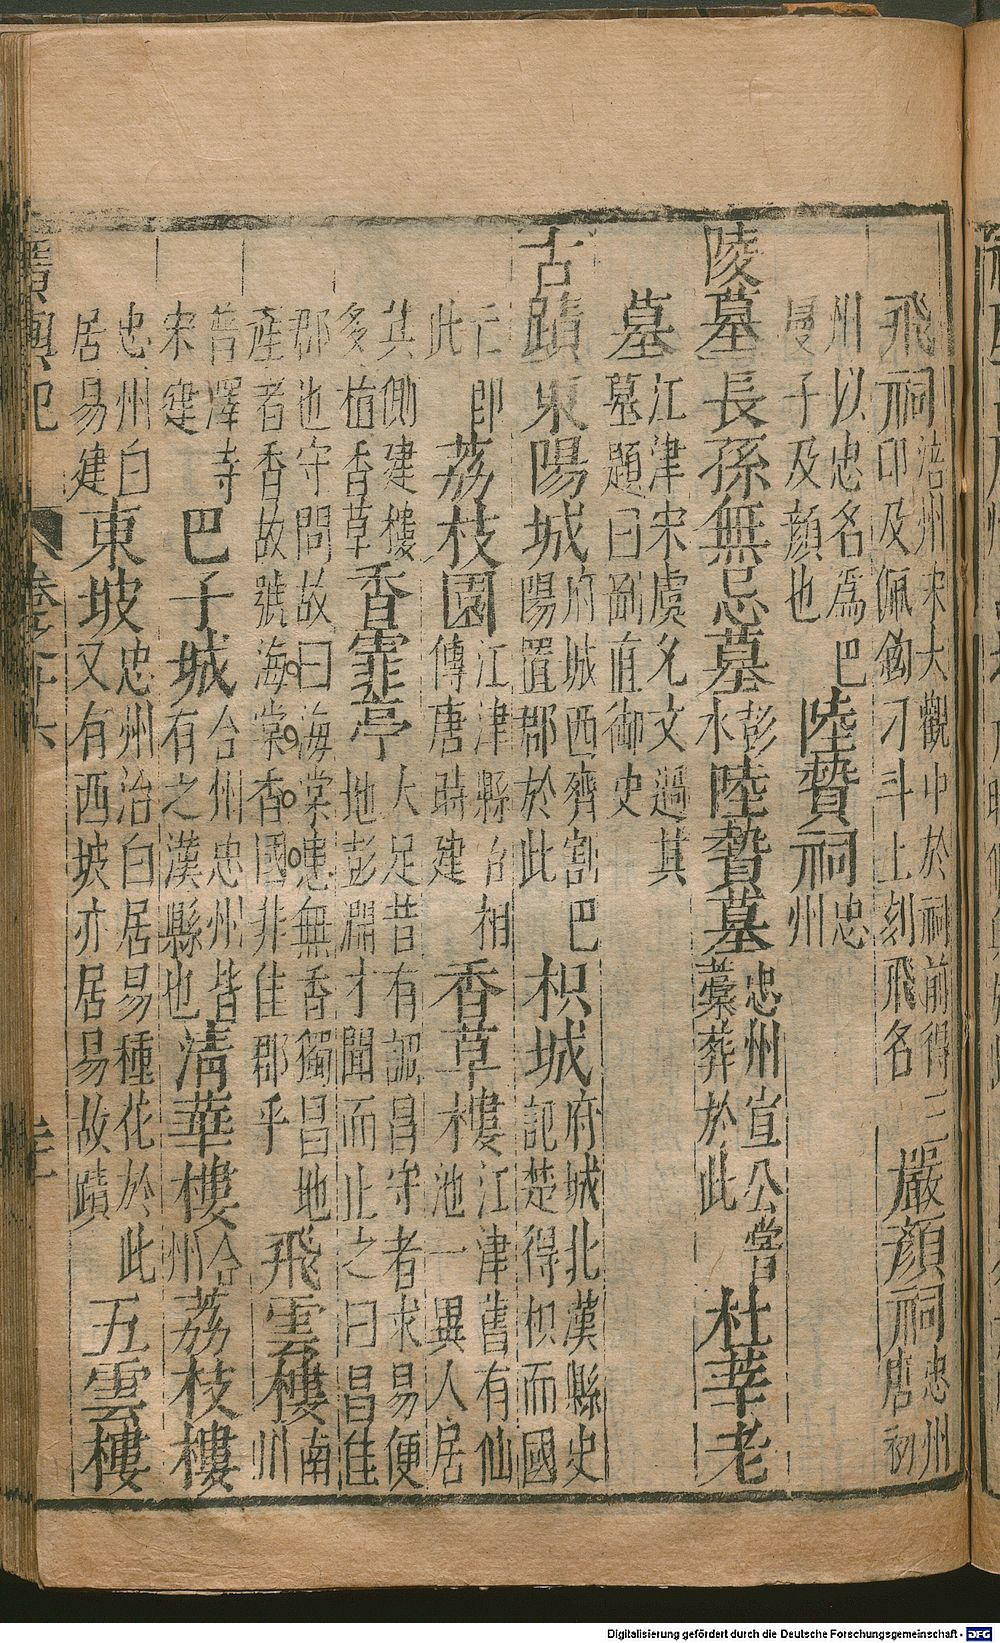 飛祠涪州宋大觀中於祠前得三印及佩鉤刁斗上刻飛名嚴顏祠忠州唐初
州以忠名爲巴蔓子及顏也陸贄祠忠州
陵墓長孫無忌墓彭水陸贄墓忠州宣公嘗藁葬於此杜莘老
墓江津宋虞允文過其墓題曰剛直御史
古蹟東陽城府城西齊割巴陽置郡於此枳城府城北漢縣史記楚得枳而國
亡即此荔枝園江津縣治相傳唐時建香草樓江津舊有仙木池一異人居
其側建樓多植香草香霏亭大足昔有詔昌守者求易便地彭淵才聞而止之曰昌佳
郡也守問故曰海棠患無香獨昌地產者香故號海棠香國非佳郡乎飛雲樓南川
普澤寺宋建巴子城合州忠州皆有之漢縣也清華樓合州荔枝樓
忠州白居易建東坡忠州治白居易種花於此又有西坡亦居易故蹟五雲樓
廣輿記
卷之十六